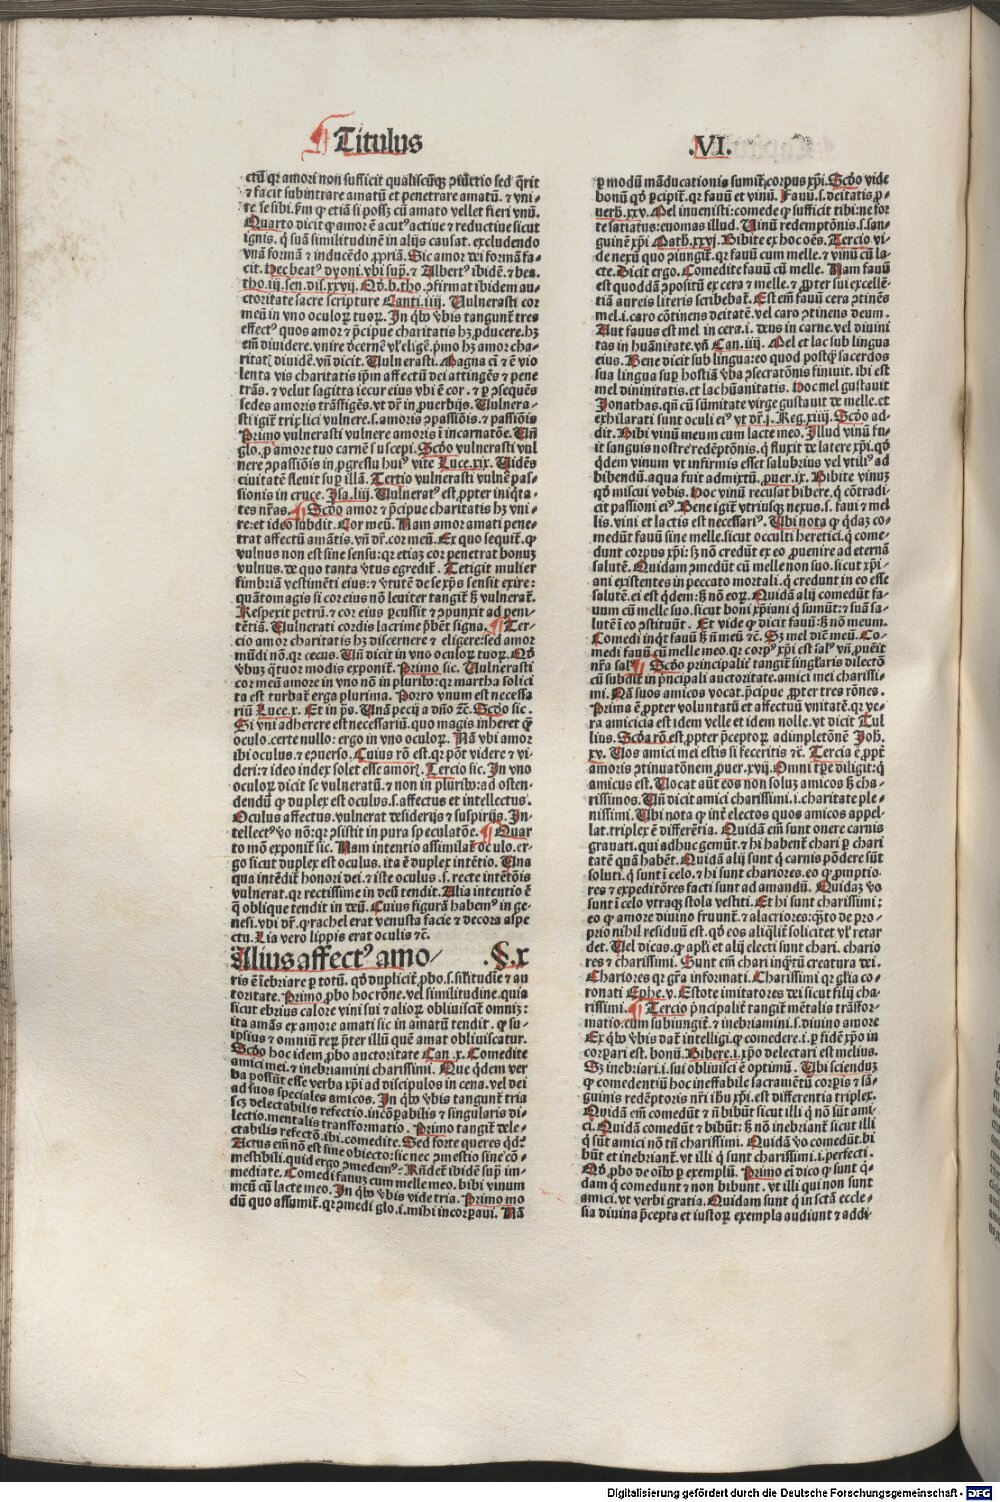 Titulus
.VI.
ctū qr amori non sufficit qualiscūqȝ ꝯiūctio sed q̄rit
⁊ facit subintrare amatū et penetrare amatū. ⁊ vni-
re se sibi. sm̄ ꝙ etiā si possȝ cū amato vellet fieri vnū.
Quarto dicit ꝙ amor ē acutꝰ actiue ⁊ reductiue sicut
ignis. q̄ suā similitudinē in alijs causat. excludendo
vnā formā ⁊ inducēdo ꝓpriā. Sic amor dei formā fa-
cit. Hec beatꝰ dyoni. vbi sup̄. ⁊ Albertꝰ ibidē. ⁊ bea.
tho. iij. sen. dis. xxvij. Qd̄. b. tho. ꝯfirmat ibidem au-
ctoritate sacre scripture Canti. iiij. Uulnerasti cor
meū in vno oculoꝝ tuoꝝ. In qͥbꝰ v̄bis tangunt̄ tres
effectꝰ quos amor ⁊ p̄cipue charitatis hȝ ꝓducere. hȝ
em̄ diuidere. vnire ⁊ discernē vl̓ eligē. pͥmo hȝ amor cha-
ritatꝭ diuidē. vn̄ dicit. Uulnerasti. Magna em̄ ⁊ ē vio
lenta vis charitatis ip̄m affectū dei attingēs ⁊ pene
trās. ⁊ velut sagitta iecur eius vbi ē cor. ⁊ ꝑ ꝯsequēs
sedes amoris trāsfigēs. vt dr̄ in ꝓuerbijs. Uulnera-
sti igit̄ triplici vulnere. s. amoris ꝯpassiōis. ⁊ passiōis
Primo vulnerasti vulnere amoris ī incarnatōe. Un̄
glo. ꝑ amore tuo carnē suscepi. Scd̓o vulnerasti vul
nere ꝯpassiōis in ꝓgressu huiꝰ vite Luce. xix. Uidēs
ciuitatē fleuit suꝑ illā. Tertio vulnerasti vulnē pas-
sionis in cruce. Isa. liij. Uulneratꝰ est ꝓpter iniqͥta-
tes nr̄as. ¶ Scd̓o amor ⁊ p̄cipue charitatis hȝ vni-
re: et ideo subdit. Cor meū. Nam amor amati pene-
trat affectū amātis. vn̄ dr̄. cor meū. Ex quo sequit̄. ꝙ
vulnus non est sine sensu: qr etiaȝ cor penetrat bonuȝ
vulnus. de quo tanta v̄tus egredit̄. Tetigit mulier
fimbriā vestimēti eius: ⁊ v̄tutē de se xp̄s sensit exire:
quātomagis si cor eius nō leuiter tangit̄ sȝ vulnerat̄.
Respexit petrū. ⁊ cor eius ꝑcussit ⁊ ꝯpunxit ad peni-
tētiā. Uulnerati cordis lacrime p̄bēt signa. ¶ Ter-
cio amor charitatis hȝ discernere ⁊ eligere: sed amor
mūdi nō. qr cecus. Un̄ dicit in vno oculoꝝ tuoꝝ. Qd̄
v̄buȝ q̄tuor modis exponit̄. Primo sic. Uulnerasti
cor meū amore in vno nō in pluribꝰ: qr martha solici
ta est turbat̄ erga plurima. Porro vnum est necessa
riū Luce. x. Et in ps. Unā pecij a dn̄o ⁊c̄. Scd̓o sic.
Si vni adherere est necessariū. quo magis inheret qͣ
oculo. certe nullo: ergo in vno oculoꝝ. Nā vbi amor
ibi oculus: ⁊ eꝯuerso. Cuius rō est. qr pōt videre ⁊ vi-
deri: ⁊ ideo index solet esse amorꝭ. Tercio sic. In vno
oculoꝝ dicit se vulneratū. ⁊ non in pluribꝰ: ad osten-
dendū ꝙ duplex est oculus. s. affectus et intellectus.
Oculus affectus. vulnerat desiderijs ⁊ suspirijs. In-
tellectꝰ v̄o nō: qr ꝯsistit in pura speculatōe. ¶ Quar
to mō exponit̄ sic. Nam intentio assimilat̄ oculo. er-
go sicut duplex est oculus. ita ē duplex intētio. Una
qua intēdit̄ honori dei. ⁊ iste oculus. s. recte intētōis
vulnerat. qr rectissime in deū tendit. Alia intentio ē
q̄ oblique tendit in deū. Cuius figurā habemꝰ in ge-
nesi. vbi dr̄. ꝙ rachel erat venusta facie ⁊ decora aspe
ctu. Lia vero lippis erat oculis ⁊c̄.
Alius affectꝰ amo/ .§.x
ris ē īebriare ꝑ totū. qd̄ duplicit̄ ꝓbo. s. sil̓itudie ⁊ au
toritate. Primo ꝓbo hoc rōne. vel similitudine. quia
sicut ebrius calore vini sui ⁊ alioꝝ obliuiscit̄ omniȝ:
ita amās ex amore amati sic in amatū tendit. ꝙ su-
ipsius ⁊ omniū reꝝ p̄ter illū quē amat obliuiscatur.
Scd̓o hoc idem ꝓbo auctoritate Can. x. Comedite
amici mei. ⁊ inebriamini charissimi. Que q̄dem ver
ba possūt esse verba xp̄i ad discipulos in cena. vel dei
ad suos speciales amicos. In qͥbꝰ v̄bis tangunt̄ tria
scȝ delectabilis refectio. incōꝑabilis ⁊ singularis di-
lectio. mentalis transformatio. Primo tangit̄ dele-
ctabilis refectō. ibi. comedite. Sed forte queres qd̄.
Actus em̄ nō est sine obiecto: sic nec ꝯmestio sine cō-
mestibili. quid ergo ꝯmedemꝰ: Rn̄det̄ ibidē suꝑ im-
mediate. Comedi fauuȝ cum melle meo. bibi vinum
meū cū lacte meo. In qͥbꝰ v̄bis vide tria. Primo mo
dū quo assumit̄. qr ꝯmedi glo. i. mihi incorꝑaui. Nā
ꝑ modū māducationis sumit̄ corpus xp̄i. Scd̓o vide
bonū qd̄ ꝑcipit̄. qr fauū et vinū. Fauū. s. deitatis ꝓ-
uerb̄. xxv. Mel inuenisti: comede ꝙ sufficit tibi: ne for
te satiatus: euomas illud. Uinū redemptōnis. s. san-
guinē xp̄i Math. xxvj. Bibite ex hoc oēs. Tercio vi-
de nexū quo ꝯiungit̄. qr fauū cum melle. ⁊ vinū cū la-
cte. Dicit ergo. Comedite fauū cū melle. Nam fauū
est quoddā ꝯpositū ex cera ⁊ melle. ⁊ ꝓpter sui excellē-
tiā aureis literis scribebat̄. Est em̄ fauū cera ꝯtinēs
mel. i. caro cōtinens deitatē. vel caro ꝯtinens deum.
Aut fauus est mel in cera. i. deus in carne. vel diuini
tas in hūanitate. vn̄ Can. iiij. Mel et lac sub lingua
eius. Bene dicit sub lingua: eo quod postqͣ sacerdos
sua lingua suꝑ hostiā v̄ba ꝯsecratōnis finiuit. ibi est
mel diuinitatis. et lac hūanitatis. Hoc mel gustauit
Jonathas. qn̄ cū sūmitate virge gustauit de melle. et
exhilarati sunt oculi eiꝰ vt dr̄. j. Reg. xiiij. Scd̓o ad-
dit. Bibi vinū meum cum lacte meo. Illud vinū fu-
it sanguis nostre redēptōnis. q̄ fluxit de latere xp̄i. qd̄
q̄dem vinum vt infirmis esset salubrius vel vtiliꝰ ad
bibendū. aqua fuit admixtū. ꝓuer. ix. Bibite vinuȝ
qd̄ miscui vobis. Hoc vinū recusat bibere. q̄ cōtradi-
cit passioni eiꝰ. Bene igit̄ vtriusqȝ nexus. s. faui ⁊ mel
lis. vini et lactis est necessariꝰ. Ubi nota ꝙ q̄daȝ co-
medūt fauū sine melle. sicut occulti heretici. q̄ come-
dunt corpus xp̄i: sȝ nō credūt ex eo ꝓuenire ad eternā
salutē. Quidam ꝯmedūt cū melle non suo. sicut xp̄i-
ani existentes in peccato mortali. q̄ credunt in eo esse
salutē. ei est q̄dem: sȝ nō eoꝝ. Quidā alij comedūt fa-
uum cū melle suo. sicut boni xp̄iani q̄ sumūt: ⁊ suā sa-
lutē ī eo ꝯstituūt. Et vide ꝙ dicit fauū: sȝ nō meum.
Comedi inqͥt fauū sȝ n̄ meū ⁊c̄. Sȝ mel diē meū. Co-
medi fauū cū melle meo. qr corpꝰ xp̄i est salꝰ vn̄ ꝓuēit
nr̄a salꝰ. ¶ Scd̓o principalit̄ tangit̄ singl̓aris dilectō
cū subdit̄ in p̄ncipali auctoritate. amici mei charissi-
mi. Nā suos amicos vocat. p̄cipue ꝓpter tres rōnes.
Prima ē ꝓpter voluntatū et affectuū vnitatē. qr ve-
ra amicicia est idem velle et idem nolle. vt dicit Tul
lius. Scd̓a rō est. ꝓpter p̄ceptoꝝ adimpletōnē Joh̄.
xv. Uos amici mei estis si feceritis ⁊c̄. Tercia ē ꝓpt̄
amoris ꝯtinuatōnem ꝓuer. xvij. Omni tp̄e diligit: q̄
amicus est. Uocat aūt eos non soluȝ amicos sȝ cha-
rissimos. Un̄ dicit amici charissimi. i. charitate ple-
nissimi. Ubi nota ꝙ int̄ electos quos amicos appel-
lat. triplex ē differētia. Quidā em̄ sunt onere carnis
grauati. qui adhuc gemūt. ⁊ hi habent̄ chari ꝑ chari
tatē quā habēt. Quidā alij sunt q̄ carnis pōdere sūt
soluti. q̄ sunt ī celo. ⁊ hi sunt chariores. eo ꝙ ꝓmptio-
res ⁊ expeditōres facti sunt ad amandū. Quidaȝ v̄o
sunt ī celo vtraqȝ stola vestiti. Et hi sunt charissimi:
eo ꝙ amore diuino fruunt̄. ⁊ alacriores: qͣꝫto de pro-
prio nihil residuū est. qd̄ eos aliqͥlit̄ solicitet vl̓ retar
det. Uel dicas. ꝙ apl̓i et alij electi sunt chari. chario
res ⁊ charissimi. Sunt em̄ chari inqͣtū creatura dei.
Chariores qr gr̄a informati. Charissimi qr gl̓ia co-
ronati Ephe. v. Estote imitatores dei sicut filij cha-
rissimi. ¶ Tercio p̄ncipalit̄ tangit̄ mētalis trāsfor-
matio. cum subiungit̄. ⁊ inebriamini. s. diuino amore
Ex qͥbꝰ v̄bis dat̄ intelligi. ꝙ comedere. i. ꝑ fidē xp̄o in
corꝑari est. bonū. Bibere. i. xp̄o delectari est melius.
Sȝ inebriari. i. sui obliuisci ē optimū. Ubi sciendūȝ
ꝙ comedentiū hoc ineffabile sacramētū corꝑis ⁊ sā-
guinis redēptoris nr̄i ihu xp̄i. est differentia triplex.
Quidā em̄ comedūt ⁊ n̄ bibūt sicut illi q̄ nō sūt ami
ci. Quidā comedūt ⁊ bibūt: sȝ nō inebriant̄ sicut illi
q̄ sūt amici nō tn̄ charissimi. Quidā v̄o comedūt. bi
būt et inebriant̄. vt illi q̄ sunt charissimi. i. perfecti.
Qd̄ ꝓbo de oībꝰ ꝑ exemplū. Primo ei dico ꝙ sunt q̄-
dam q̄ comedunt ⁊ non bibunt. vt illi qui non sunt
amici. vt verbi gratia. Quidam sunt q̄ in sctā eccle-
sia diuina p̄cepta et iustoꝝ exempla audiunt ⁊ addi
Digitalisierung gefördert durch die Deutsche Forschungsgemeinschaft - DFG